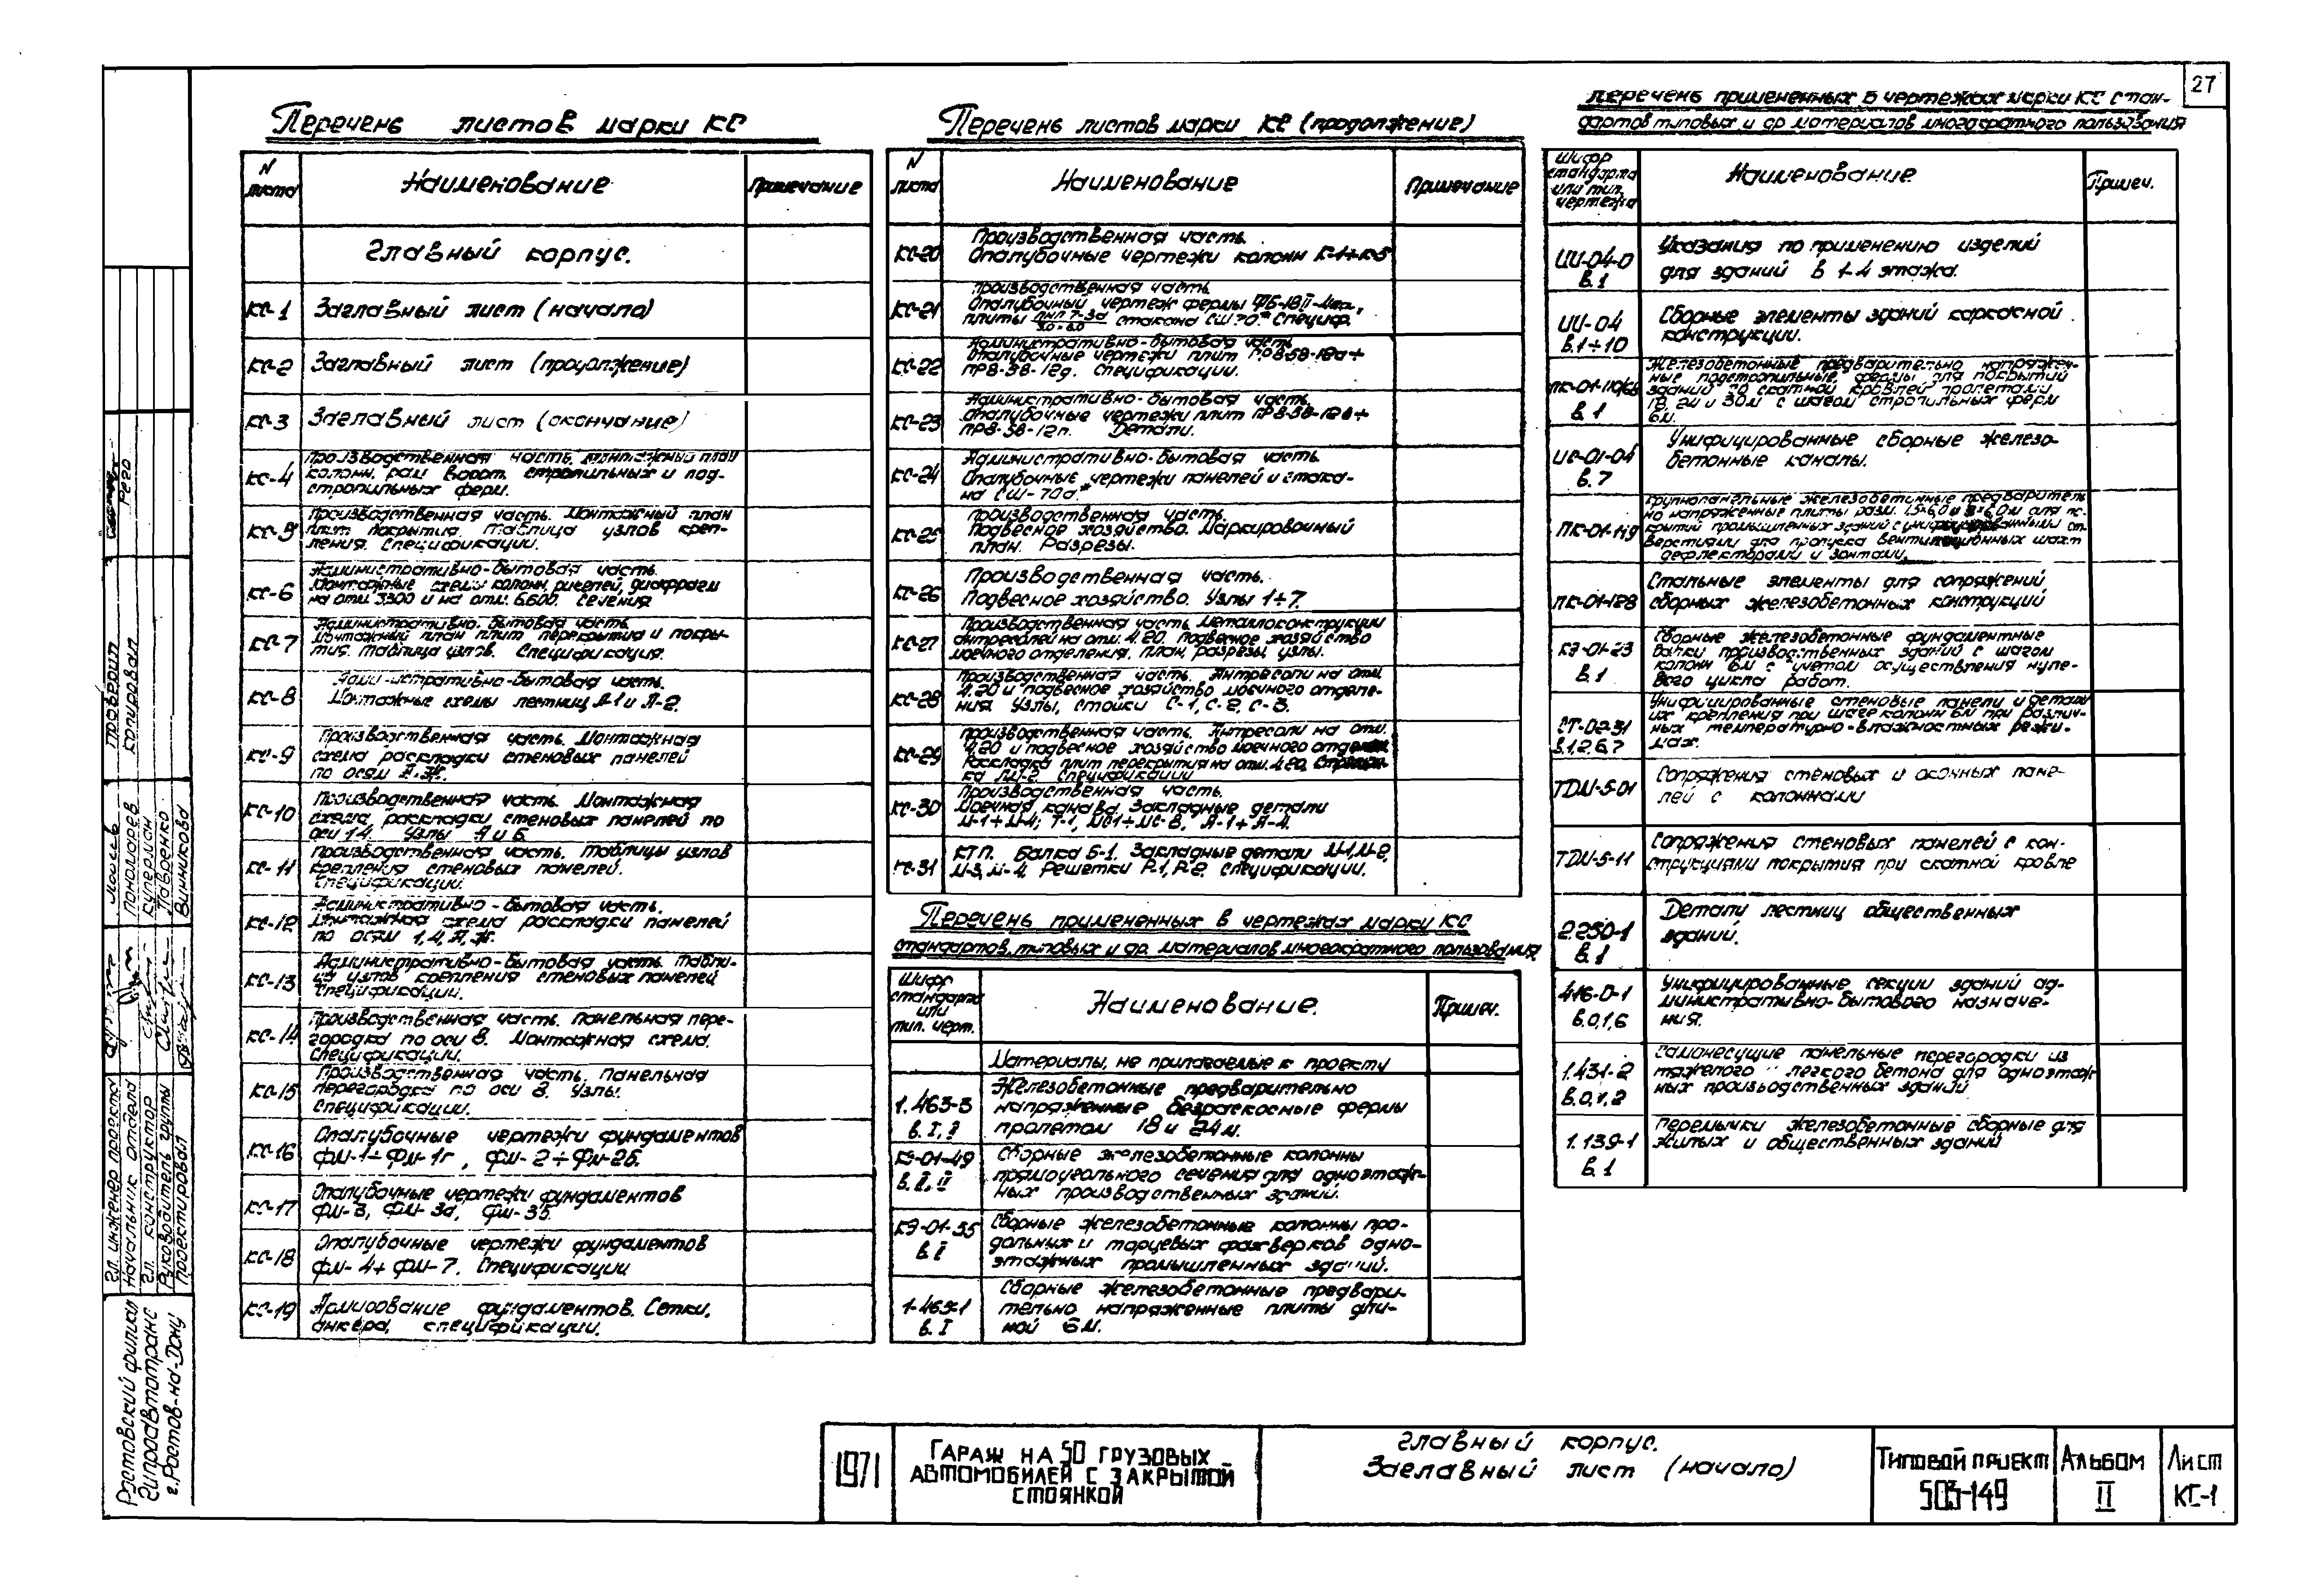 27
Перечень листов марки КС
N листа
Наименование
Примечание
Главный корпус.
КС-1
Заглавный лист (начало)
КС-2
Заглавный лист (продолжение)
КС-3
Заглавный лист (окончание)
КС-4
Производственная часть, монтажный план
колонн, рам ворот, стропильных и под-
стропильных ферм.
КС-5
Производственная часть. Монтажный план
плит покрытия. Таблица узлов креп-
ления. Спецификации.
КС-6
Административно-бытовая часть.
Монтажные схемы колонн, ригелей, диафрагм
на отм. 3.300 и на отм. 6.600. Сечения
КС-7
Административно-бытовая часть
Монтажный план плит перекрытия и покры-
тия. Таблица узлов. Спецификация.
КС-8
Административно-бытовая часть.
Монтажные схемы лестниц Л-1 и Л-2.
КС-9
Производственная часть. Монтажная
схема раскладки стеновых панелей
по осям
КС-10
Производственная часть. Монтажная
схема раскладки стеновых панелей по
оси 14. Узлы А и Б.
КС-11
Производственная часть. Таблицы узлов
крепления стеновых панелей.
Спецификации.
КС-12
Административно-бытовая часть.
Монтажная схема раскладки панелей
по осям 1, 4, А, Ж.
КС-13
Административно-бытовая часть. Табли-
ца узлов крепления стеновых панелей
Спецификации.
КС-14
Производственная часть. Панельная пере-
городка по оси 8. Монтажная схема.
Спецификации.
КС-15
Производственная часть. Панельная
перегородка по оси 8. Узлы.
Спецификации.
КС-16
Опалубочные чертежи фундаментов
ФМ-1÷ФМ-1г, ФМ-2÷ФМ-2б.
КС-17
Опалубочные чертежи фундаментов
ФМ-3, ФМ-3а, ФМ-3б.
КС-18
Опалубочные чертежи фундаментов
ФМ-4÷ФМ-7. Спецификации
КС-19
Армирование фундаментов. Сетки,
анкера, спецификации.
Перечень листов марки КС (продолжение)
N листа
Наименование
Примечание
КС-20
Производственная часть.
Опалубочные чертежи колонн К-1÷К-5
КС-21
Производственная часть
Опалубочный чертеж фермы
плиты стакана СШ-70.* Специф.
КС-22
Административно-бытовая часть
Опалубочные чертежи плит ПР8-58-12а÷
ПР8-58-12д. Спецификации.
КС-23
Административно-бытовая часть.
Опалубочные чертежи плит ПР8-58-12в÷
ПР8-58-12п. Детали.
КС-24
Административно-бытовая часть
Опалубочные чертежи панелей и стака-
на СШ-70а.*
КС-25
Производственная часть.
Подвесное хозяйство. Маркировочный
план. Разрезы.
КС-26
Производственная часть.
Подвесное хозяйство. Узлы 1÷7.
КС-27
Производственная часть. Металлоконструкции
антресолей на отм. 4.20, подвесное хозяйство
моечного отделения. План, разрезы, узлы.
КС-28
Производственная часть. Антресоли на отм.
4.20 и подвесное хозяйство моечного отделе-
ния. Узлы, стойки С-1, С-2, С-3.
КС-29
Производственная часть. Антресоли на отм.
4.20 и подвесное хозяйство моечного отделен.
Раскладка плит перекрытия на отм. 4.20,
Спецификации
КС-30
Производственная часть.
Моечная канава. Закладные детали
М-1÷М-4; Т-1, МС1÷МС-8, Л-1÷Л-4.
КС-31
КТП. Балка Б-1. Закладные детали М-1, М-2,
М-3, М-4. Решетки Р-1, Р-2. Спецификации.
Перечень примененных в чертежах марки КС
стандартов, типовых и др. материалов многократного пользования
Шифр
стандарта
или
тип. черт.
Наименование.
Примеч.
Материалы, не прилагаемые к проекту
1.463-3
в. I, II
Железобетонные предварительно
напряженные безраскосные фермы
пролетом 18 и 24 м.
КЭ-01-49
в. II, III
Сборные железобетонные колонны
прямоугольного сечения для одноэтаж-
ных производственных зданий.
КЭ-01-55
в. I
Сборные железобетонные колонны про-
дольных и торцевых фахверков одно-
этажных промышленных зданий.
1-465-1
в. I
Сборные железобетонные предвари-
тельно напряженные плиты дли-
ной 6 м.
Перечень примененных в чертежах марки КС стан-
дартов типовых и др материалов многократного пользования
Шифр
стандарта
или тип.
чертежа
Наименование
Примеч.
ИИ-04-0
в.1
Указания по применению изделий
для зданий в 1-4 этажа.
ИИ-04
в.1÷10
Сборные элементы зданий каркасной
конструкции.
ПК-01-110/68
в.1
Железобетонные предварительно напряжен-
ные подстропильные фермы для покрытий
зданий со скатной кровлей пролетами
18, 24 и 30м с шагом стропильных ферм
6м.
ИС-01-04
в.7
Унифицированные сборные железо-
бетонные каналы.
ПК-01-119
Крупнопанельные железобетонные предваритель
но напряженные плиты разм. 1,5×6,0 и 3×6,0м для по-
крытий промышленных зданий с унифицированными от-
верстиями для пропуска вентиляционных шахт
дефлекторами и зонтами.
ПК-01-128
Стальные элементы для сопряжений
сборных железобетонных конструкций
КЭ-01-23
в.1
Сборные железобетонные фундаментные
балки производственных зданий с шагом
колонн 6м с учетом осуществления нуле-
вого цикла работ.
СТ-02-31
в.1,2,6,7
Унифицированные стеновые панели и детали
их крепления при шаге колонн 6м при различ-
ных температурно-влажностных режи-
мах.
ТДМ-5-01
Сопряжения стеновых и оконных пане-
лей с колоннами
ТДМ-5-11
Сопряжения стеновых панелей с кон-
струкциями покрытия при скатной кровле
2.250-1
в.1
Детали лестниц общественных
зданий.
416-0-1
в.0,1,6
Унифицированные секции зданий ад-
министративно-бытового назначе-
ния.
1.431-2
в.0,1,2
Самонесущие панельные перегородки из
тяжелого и легкого бетона для одноэтаж
ных производственных зданий
1.139-1
в.1
Перемычки железобетонные сборные для
жилых и общественных зданий
Гл. инженер проекта
Начальник отдела
Гл. конструктор
Руководитель группы
Проектировал
Пономарев
Куперман
Лавренко
Винникова
Проверил
Копировал
Ростовский филиал
Гипроавтотранс
г. Ростов-на-Дону
1971
Гараж на 50 грузовых
автомобилей с закрытой
стоянкой
Главный корпус.
Заглавный лист (начало)
Типовой проект
503-149
Альбом
II
Лист
КС-1